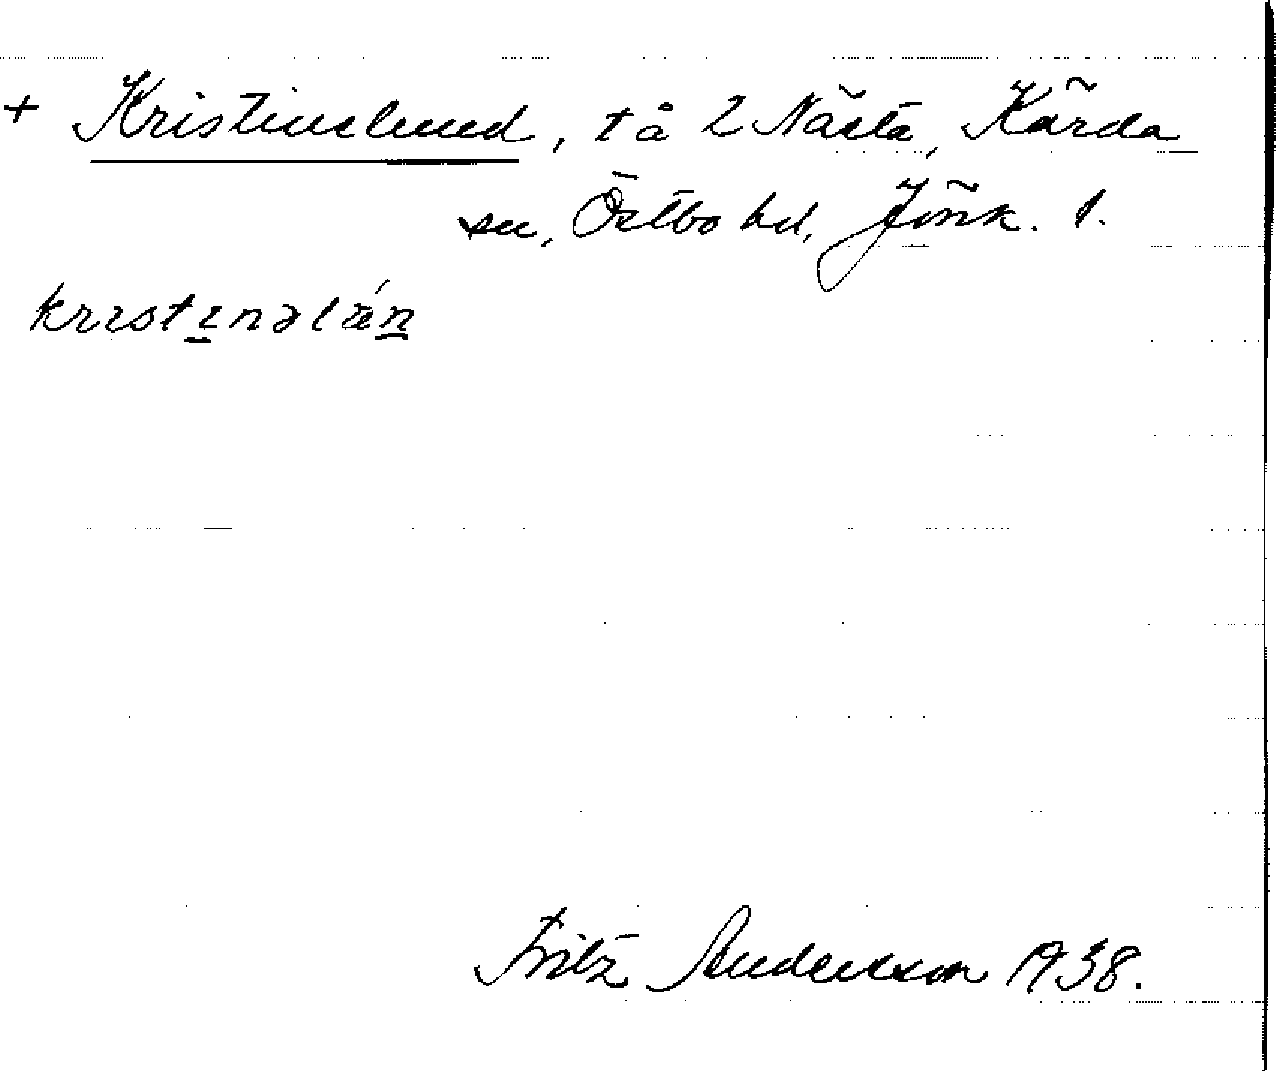 + Kristinelund, t å 2 Nästa, Kärda
sn, Östbo hd, Jönk. l.
kristinəlǽn
Fritz Andersson 1938.